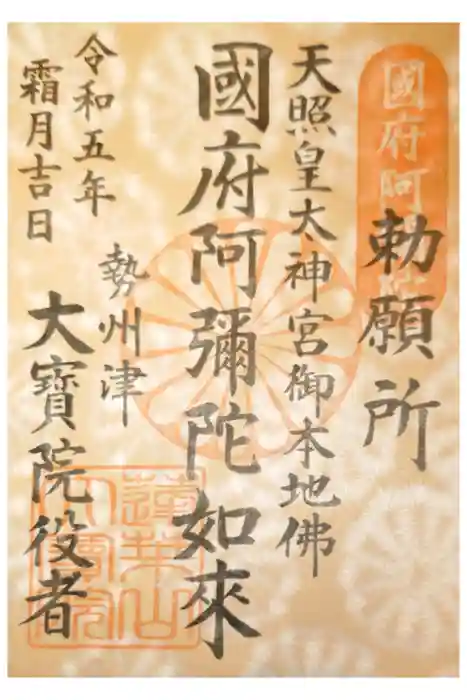 國府阿彌陀
勅願所
天照皇太神宮御本地佛
國府阿彌陀如來
令和五年
霜月吉日
勢州津
大寶院役者
蓮華山
大寶院